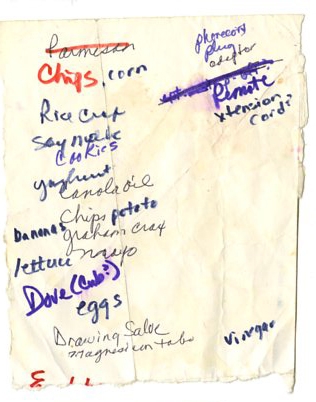 Parmesan
Chips, corn
Rice
soy milk
cookies
yoghurt
canola oil
Chips potato
bananas
graham crax
mayo
lettuce
Dove (Cub?)
eggs
Drawing Salve
magnesium tabs
plug
adaptor
Remote
xtension
cord?
vinegar